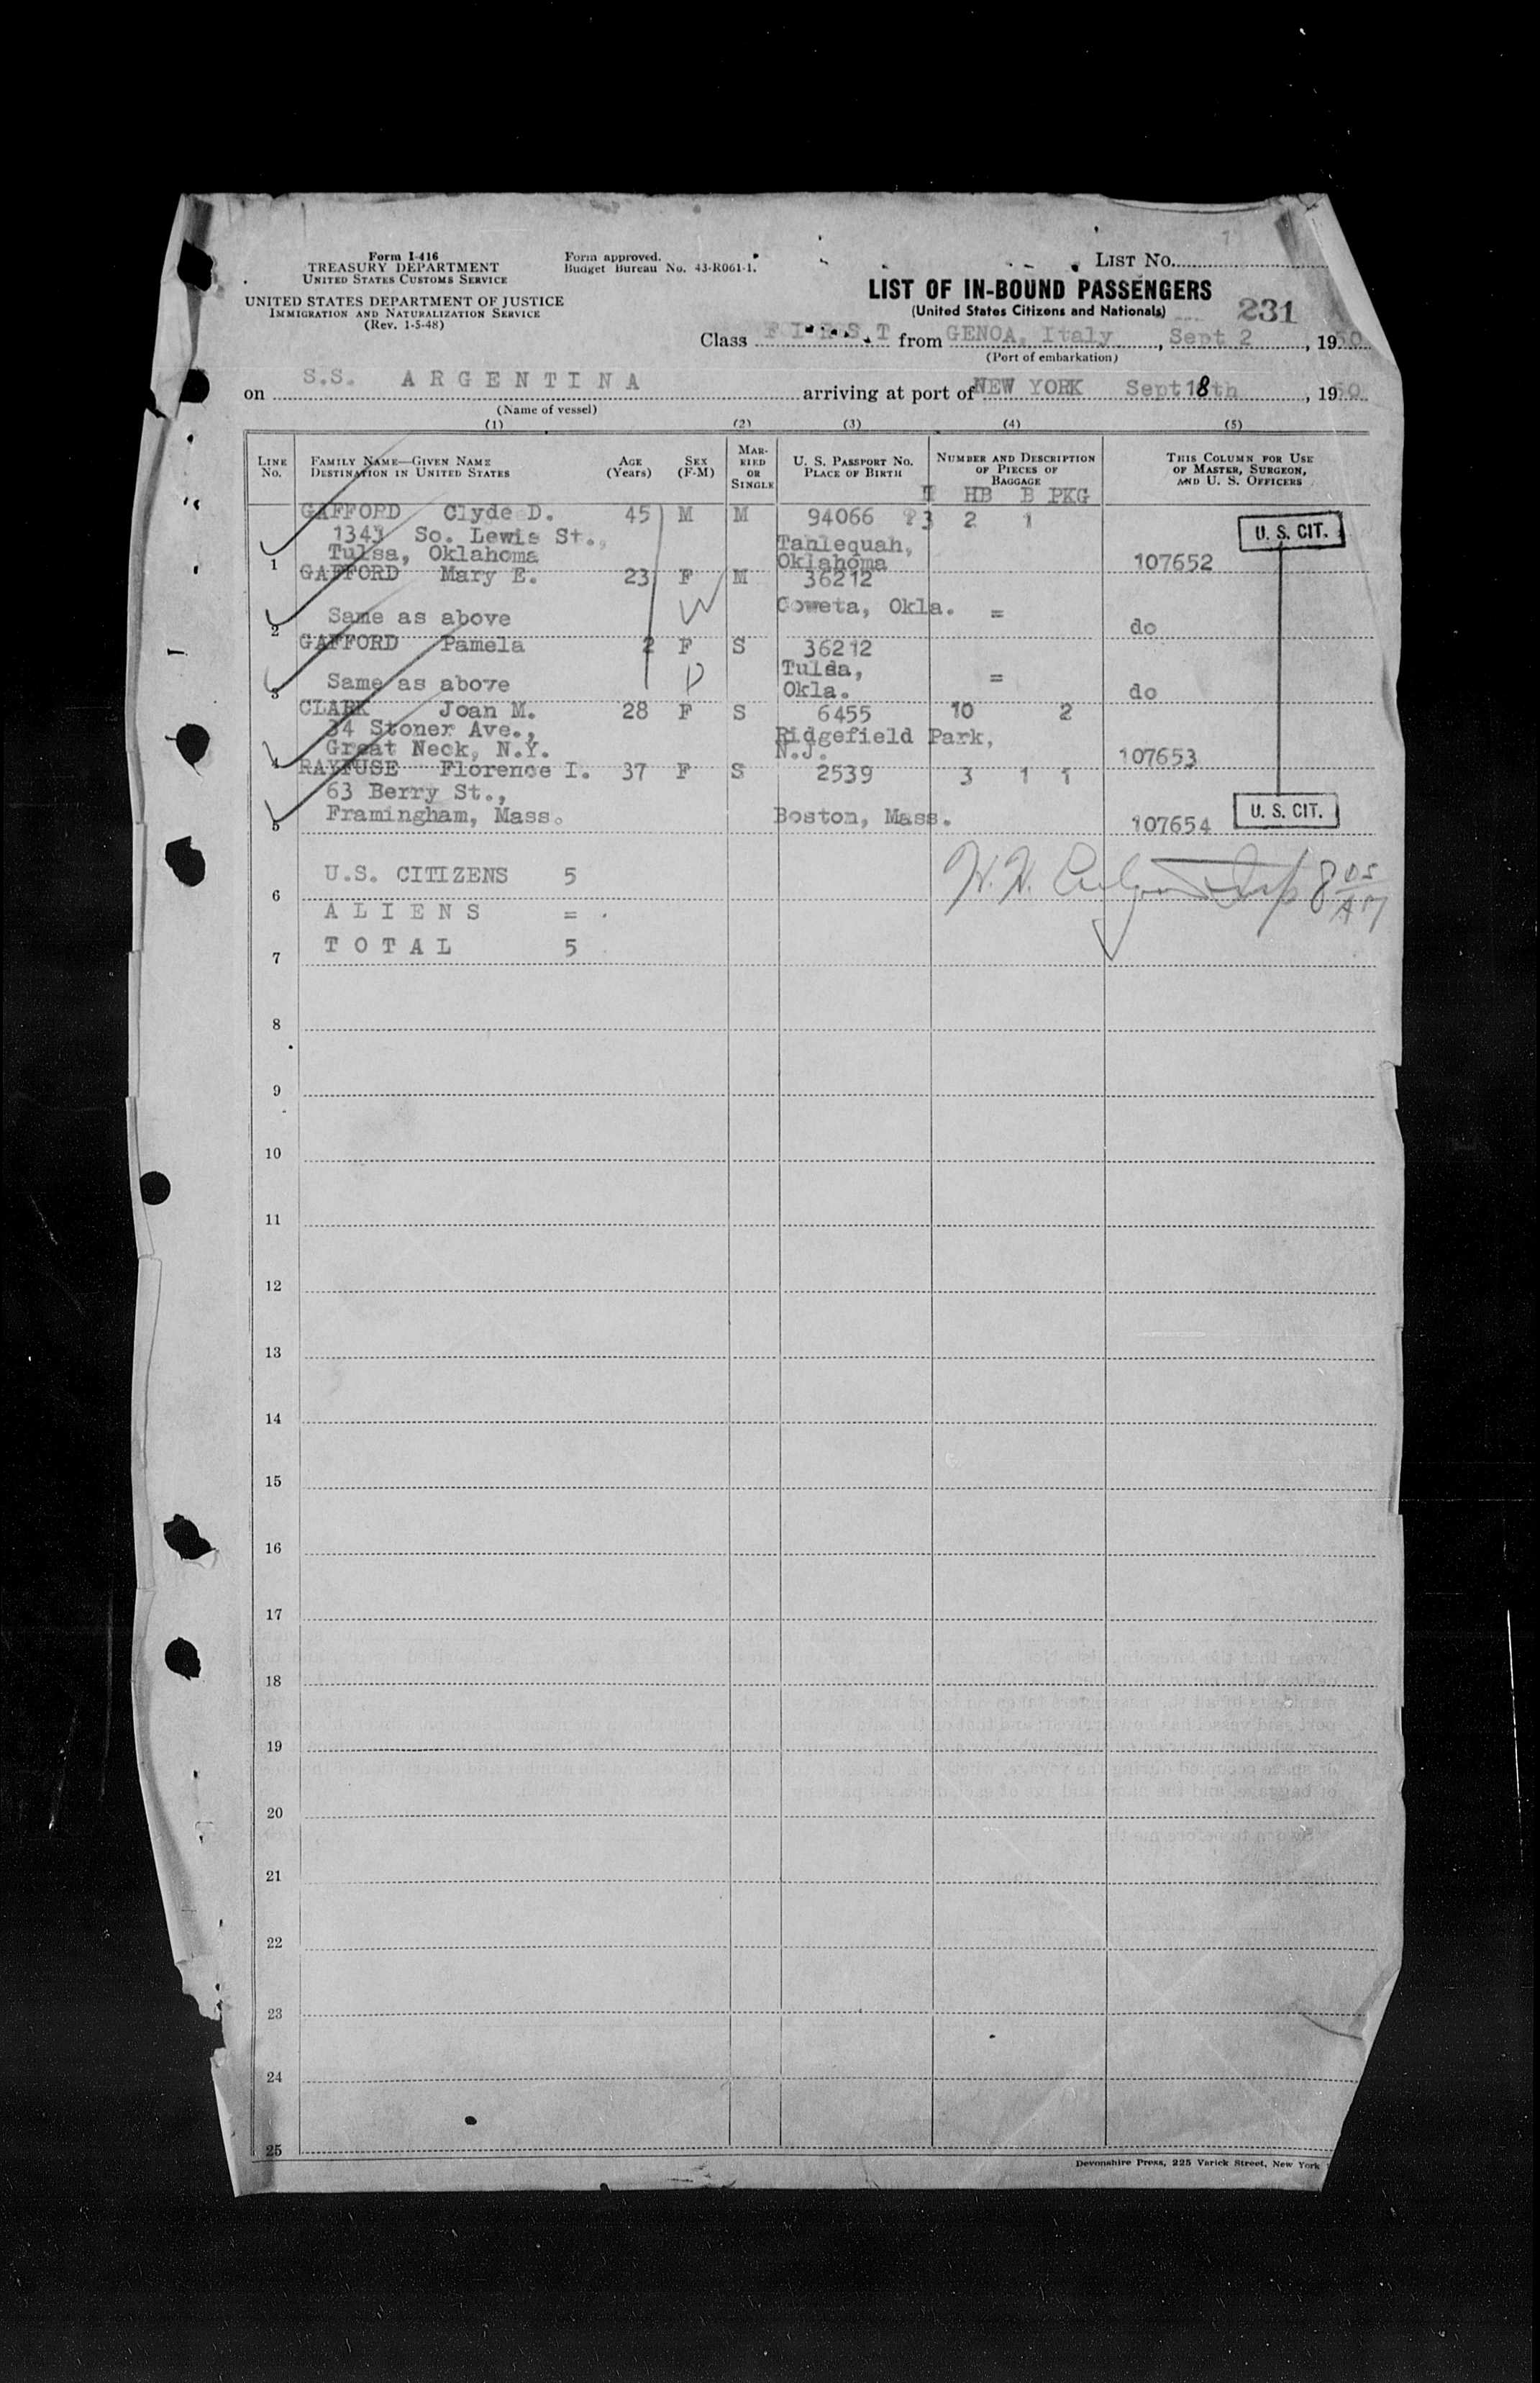 Form I-416
TREASURY DEPARTMENT
UNITED STATES CUSTOMS SERVICE
UNITED STATES DEPARTMENT OF JUSTICE
IMMIGRATION AND NATURALIZATION SERVICE
(Rev. 1-5-48)
Form approved.
Budget Bureau No. 43-R061-1.
LIST NO.
LIST OF IN-BOUND PASSENGERS
(United States Citizens and Nationals)
231
Class FIRST from GENOA, Italy, Sept 2, 1950
(Port of embarkation)
on S.S. ARGENTINA arriving at port of NEW YORK Sept 18th, 1950
(Name of vessel)
(1) (2) (3) (4) (5)
LINE NO.
FAMILY NAME—GIVEN NAME
DESTINATION IN UNITED STATES
AGE (Years)
SEX (F-M)
MARRIED OR SINGLE
U. S. PASSPORT NO.
PLACE OF BIRTH
NUMBER AND DESCRIPTION OF PIECES OF BAGGAGE
HB B PKG
THIS COLUMN FOR USE OF MASTER, SURGEON, AND U. S. OFFICERS
GAFFORD Clyde D. 45 M M 94066 3 2 1
U. S. CIT.
So. Lewis St.,
Tanlequah,
1 Tulsa, Oklahoma Oklahoma 107652
GAFFORD Mary E. 23 F M 36212
2 Same as above Coweta, Okla. = do
GAFFORD Pamela 2 F S 36212
Tulsa,
3 Same as above Okla. = do
CLARK Joan M. 28 F S 6455 10 2
34 Stoner Ave., Ridgefield Park,
4 Great Neck, N.Y. N.J. 107653
RAYFUSE Florence I. 37 F S 2539 3 1 1
63 Berry St.,
5 Framingham, Mass. Boston, Mass. 107654 U. S. CIT.
6 U.S. CITIZENS 5
ALIENS =
7 TOTAL 5
8
9
10
11
12
13
14
15
16
17
18
19
20
21
22
23
24
25
Devonshire Press, 225 Varick Street, New York